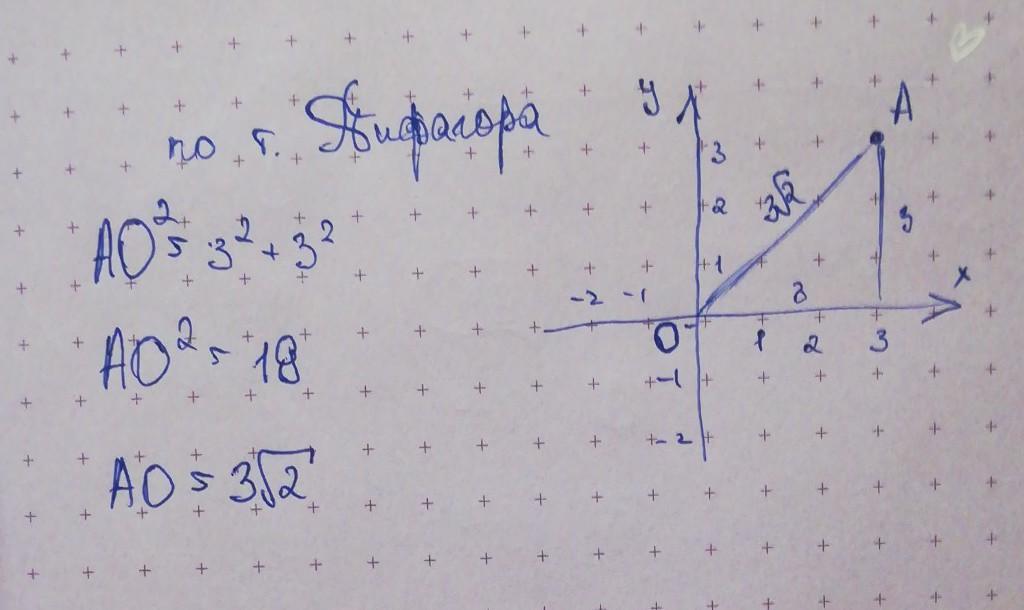 по т. Пифагора
AO² = 3² + 3²
AO² = 18
AO = 3√2
y
A
3
3√2
2
3
1
x
-2 -1
3
O
1 2 3
-1
-2